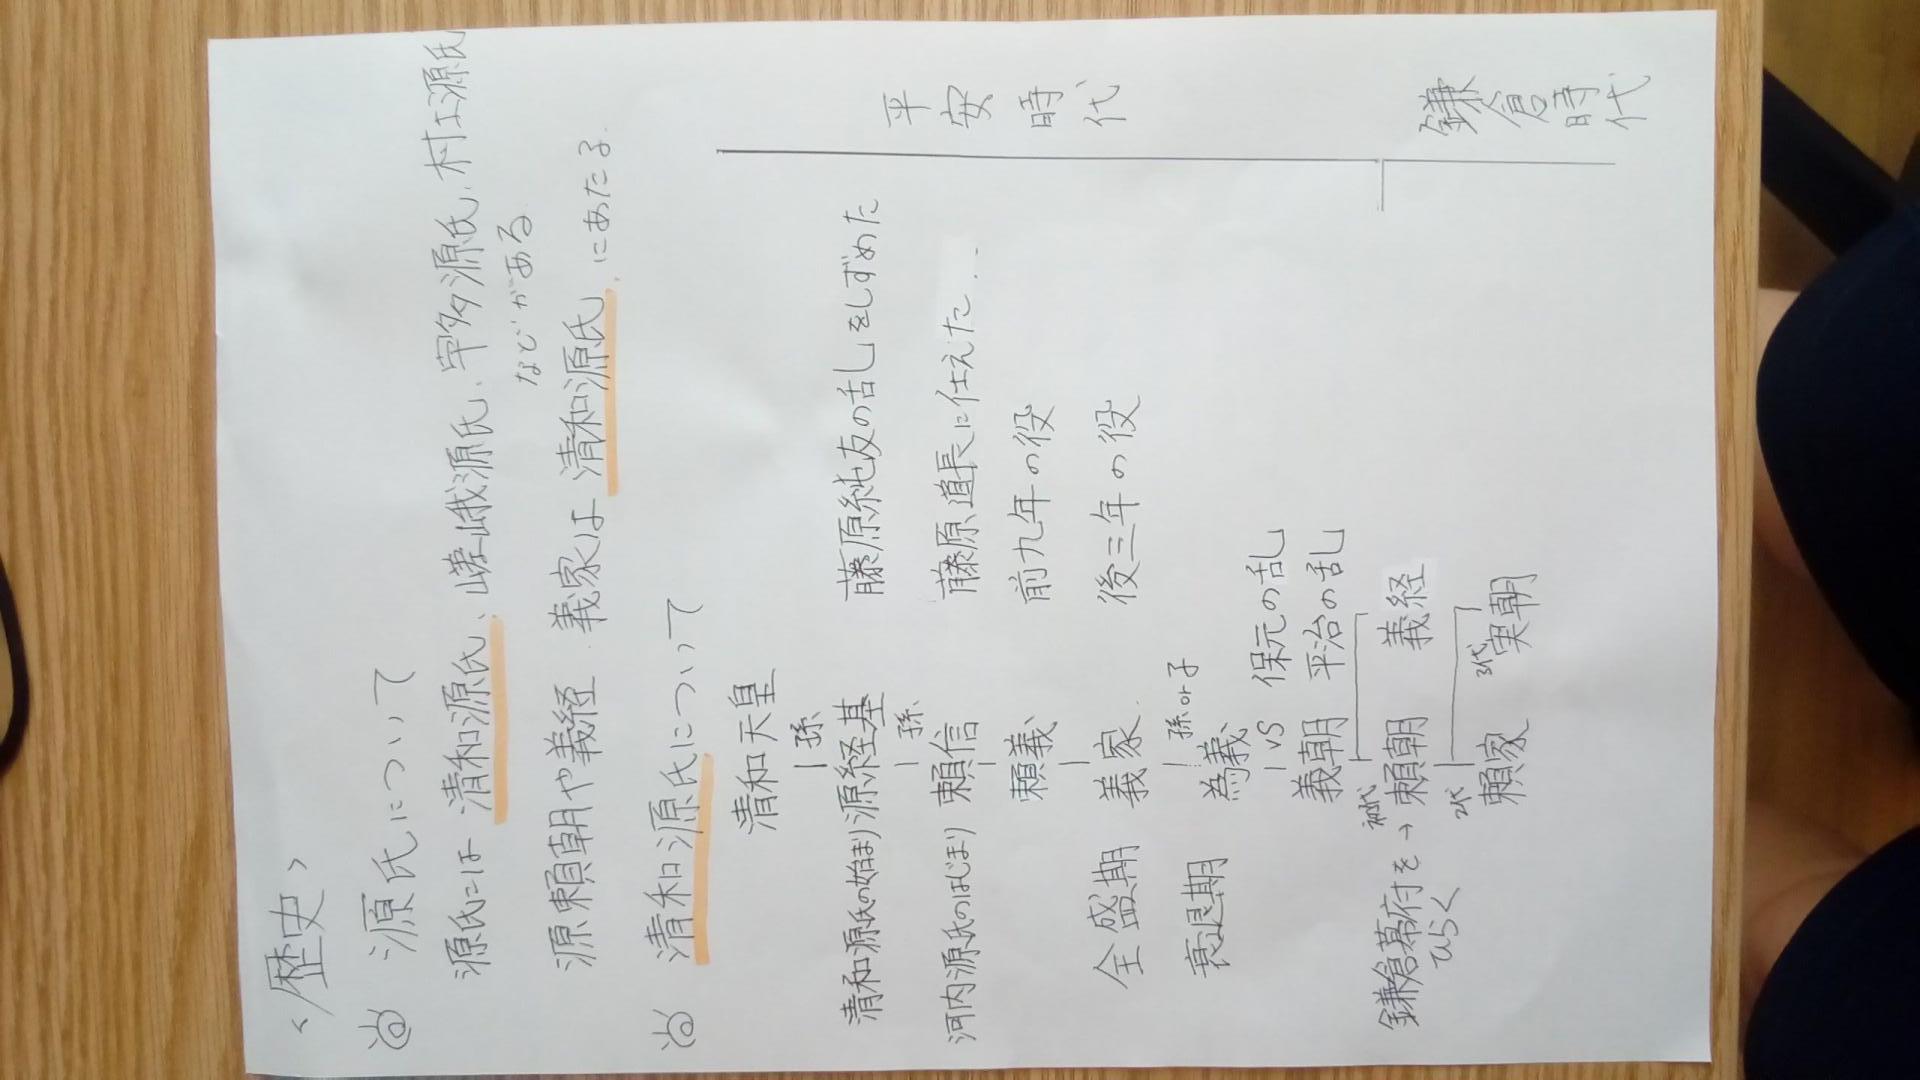 <歴史>
源氏について
源氏には清和源氏、嵯峨源氏、宇多源氏、村上源氏
などがある
源頼朝や義経、義家は清和源氏にあたる
清和源氏について
清和天皇
孫
清和源氏の始まり 源経基 藤原純友の乱しをしずめた
孫
河内源氏のはじまり 頼信 藤原道長に仕えた
頼義 前九年の役
全盛期 義家 後三年の役
孫or子
衰退期 為義
vs 保元の乱
義朝 平治の乱
初代
鎌倉幕府を → 頼朝 義経
ひらく
2代 3代
頼家 実朝
平安時代
鎌倉時代